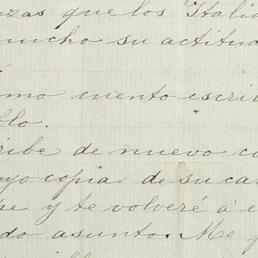 zas que los Itali
mucho su actitud
omo cuento escri
blo.
ribe de nuevo co
uyo copia de su car
e y te volveré á e
do asunto. Me p